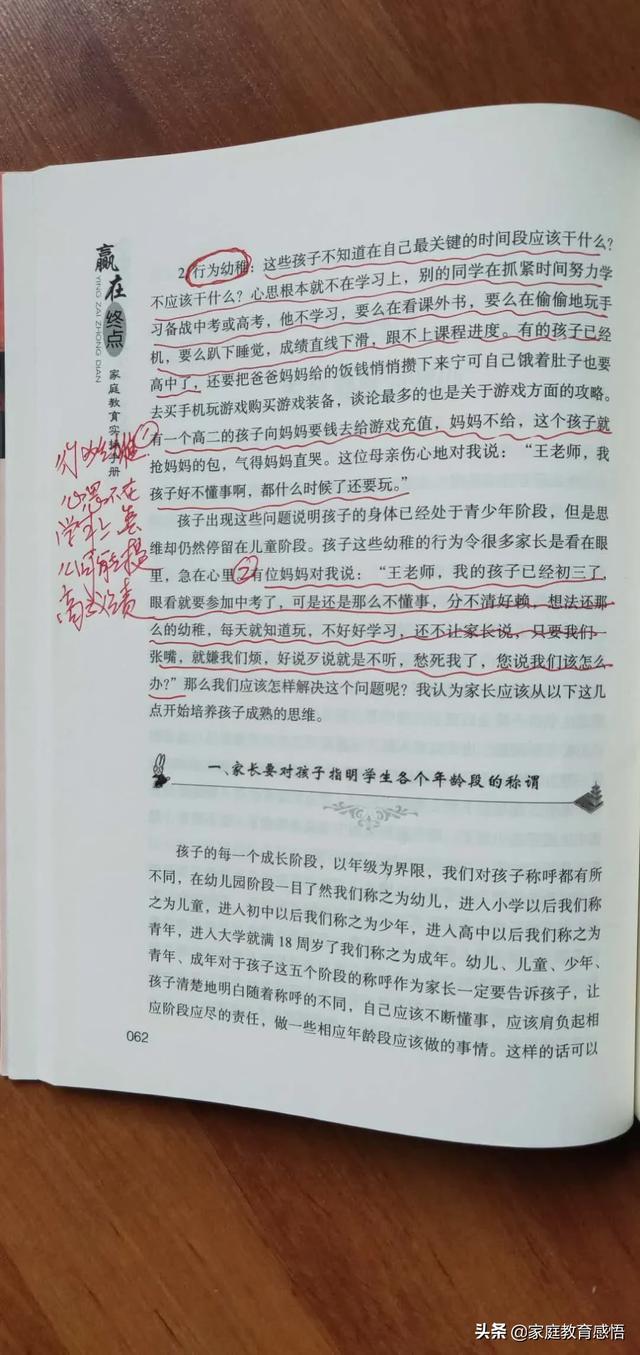 赢在终点
YING ZAI ZHONG DIAN
家庭教育实操手册
2.行为幼稚：这些孩子不知道在自己最关键的时间段应该干什么？
不应该干什么？心思根本就不在学习上，别的同学在抓紧时间努力学
习备战中考或高考，他不学习，要么在看课外书，要么在偷偷地玩手
机，要么趴下睡觉，成绩直线下滑，跟不上课程进度。有的孩子已经
高中了，还要把爸爸妈妈给的饭钱悄悄攒下来宁可自己饿着肚子也要
去买手机玩游戏购买游戏装备，谈论最多的也是关于游戏方面的攻略。
有一个高二的孩子向妈妈要钱去给游戏充值，妈妈不给，这个孩子就
抢妈妈的包，气得妈妈直哭。这位母亲伤心地对我说：“王老师，我
孩子好不懂事啊，都什么时候了还要玩。”
孩子出现这些问题说明孩子的身体已经处于青少年阶段，但是思
维却仍然停留在儿童阶段。孩子这些幼稚的行为令很多家长是看在眼
里，急在心里②有位妈妈对我说：“王老师，我的孩子已经初三了，
眼看就要参加中考了，可是还是那么不懂事，分不清好赖，想法还那
么的幼稚，每天就知道玩，不好好学习，还不让家长说，只要我们一
张嘴，就嫌我们烦，好说歹说就是不听，愁死我了，您说我们该怎么
办？”那么我们应该怎样解决这个问题呢？我认为家长应该从以下这几
点开始培养孩子成熟的思维。
一、家长要对孩子指明学生各个年龄段的称谓
孩子的每一个成长阶段，以年级为界限，我们对孩子称呼都有所
不同，在幼儿园阶段一目了然我们称之为幼儿，进入小学以后我们称
之为儿童，进入初中以后我们称之为少年，进入高中以后我们称之为
青年，进入大学就满 18 周岁了我们称之为成年。幼儿、儿童、少年、
青年、成年对于孩子这五个阶段的称呼作为家长一定要告诉孩子，让
孩子清楚地明白随着称呼的不同，自己应该不断懂事，应该肩负起相
应阶段应尽的责任，做一些相应年龄段应该做的事情。这样的话可以
062
①
心思不在
学习上，怎
么可能提
高成绩
头条 @家庭教育感悟